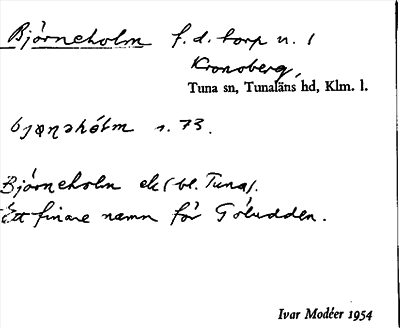 Björneholm f.d. torp u. 1
Kronoberg,
Tuna sn, Tunaläns hd, Klm. l.
s. 73.
Björneholm ek (bl. Tuna).
Ett finare namn för Göludden.
Ivar Modéer 1954